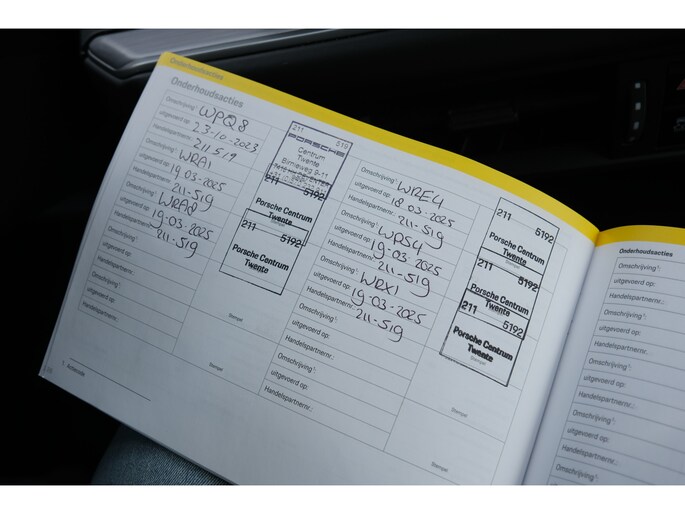 Onderhoudsacties
Onderhoudsacties
Omschrijving¹: WPQ8
uitgevoerd op: 23-10-2023
Handelspartnernr.: 211 519
Omschrijving¹: WRA1
uitgevoerd op: 19-03-2025
Handelspartnernr.: 211-519
Omschrijving¹: WRA2
uitgevoerd op: 19-03-2025
Handelspartnernr.: 211-519
Omschrijving¹:
uitgevoerd op:
Handelspartnernr.:
Omschrijving¹:
uitgevoerd op:
Handelspartnernr.:
211 519
PORSCHE
Centrum
Twente
Birnieweg 9-11
211 5192
Porsche Centrum
Twente
5192
Porsche Centrum
Twente
Stempel
Stempel
Omschrijving¹: WRE4
uitgevoerd op: 18-03-2025
Handelspartnernr.: 211-519
Omschrijving¹: WPS4
uitgevoerd op: 19-03-2025
Handelspartnernr.: 211-519
Omschrijving¹: WRX1
uitgevoerd op: 19-03-2025
Handelspartnernr.: 211-519
Omschrijving¹:
uitgevoerd op:
Handelspartnernr.:
Omschrijving¹:
uitgevoerd op:
Handelspartnernr.:
211 5192
Porsche Centrum
Twente
211 5192
Porsche Centrum
Twente
211 5192
Porsche Centrum
Twente
Stempel
Stempel
Onderhoudsacties
Omschrijving¹:
uitgevoerd op:
Handelspartnernr.:
Omschrijving¹:
uitgevoerd op:
Handelspartnernr.:
Omschrijving¹:
uitgevoerd op:
Handelspartnernr.:
Omschrijving¹:
uitgevoerd op: